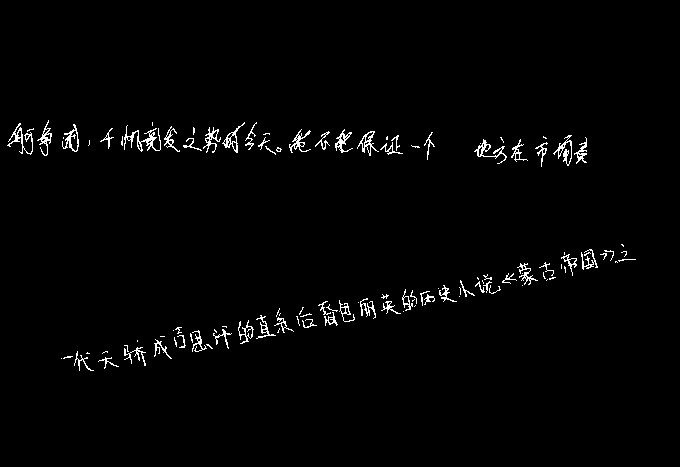 舸争流，千帆竞发之势的今天。能不能保证一个 地方在市场竞
一代天骄成吉思汗的直系后裔包丽英的历史小说《蒙古帝国》之